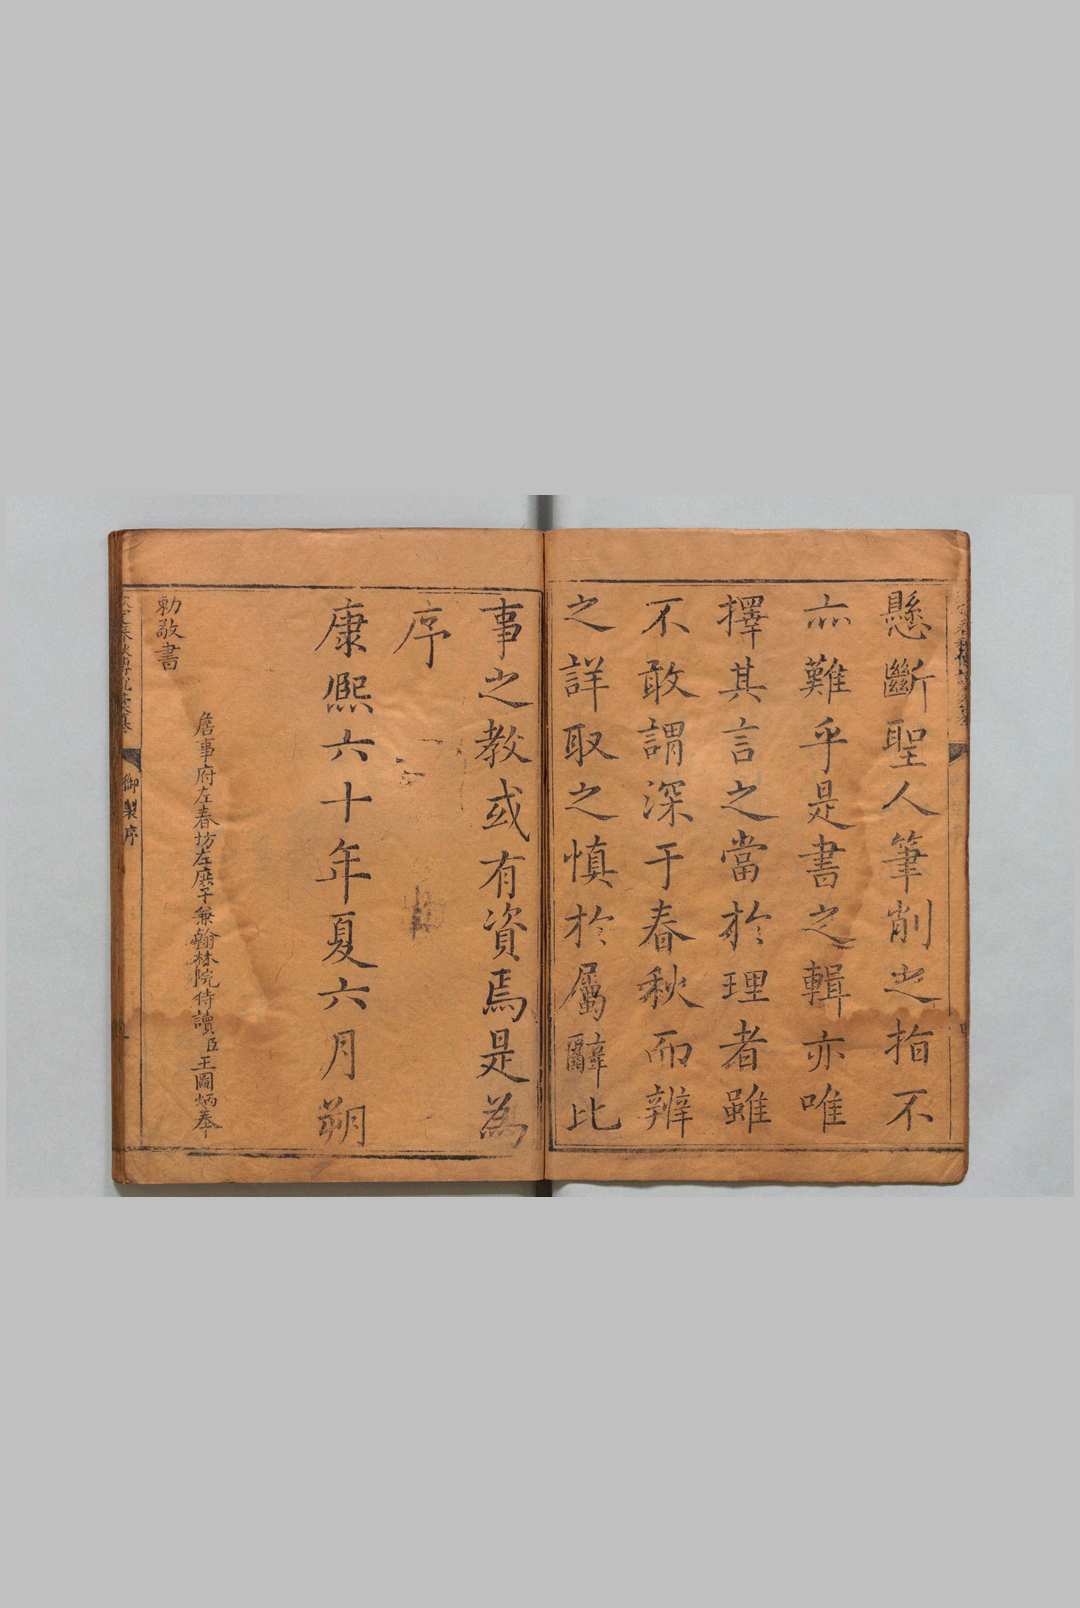 懸斷聖人筆削之指不
亦難乎是書之輯亦唯
擇其言之當於理者雖
不敢謂深于春秋而辨
之詳取之慎於屬辭比
事之教或有資焉是為
序
康熙六十年夏六月朔
詹事府左春坊左庶子兼翰林院侍讀臣王圖炳奉
勅敬書
御製序